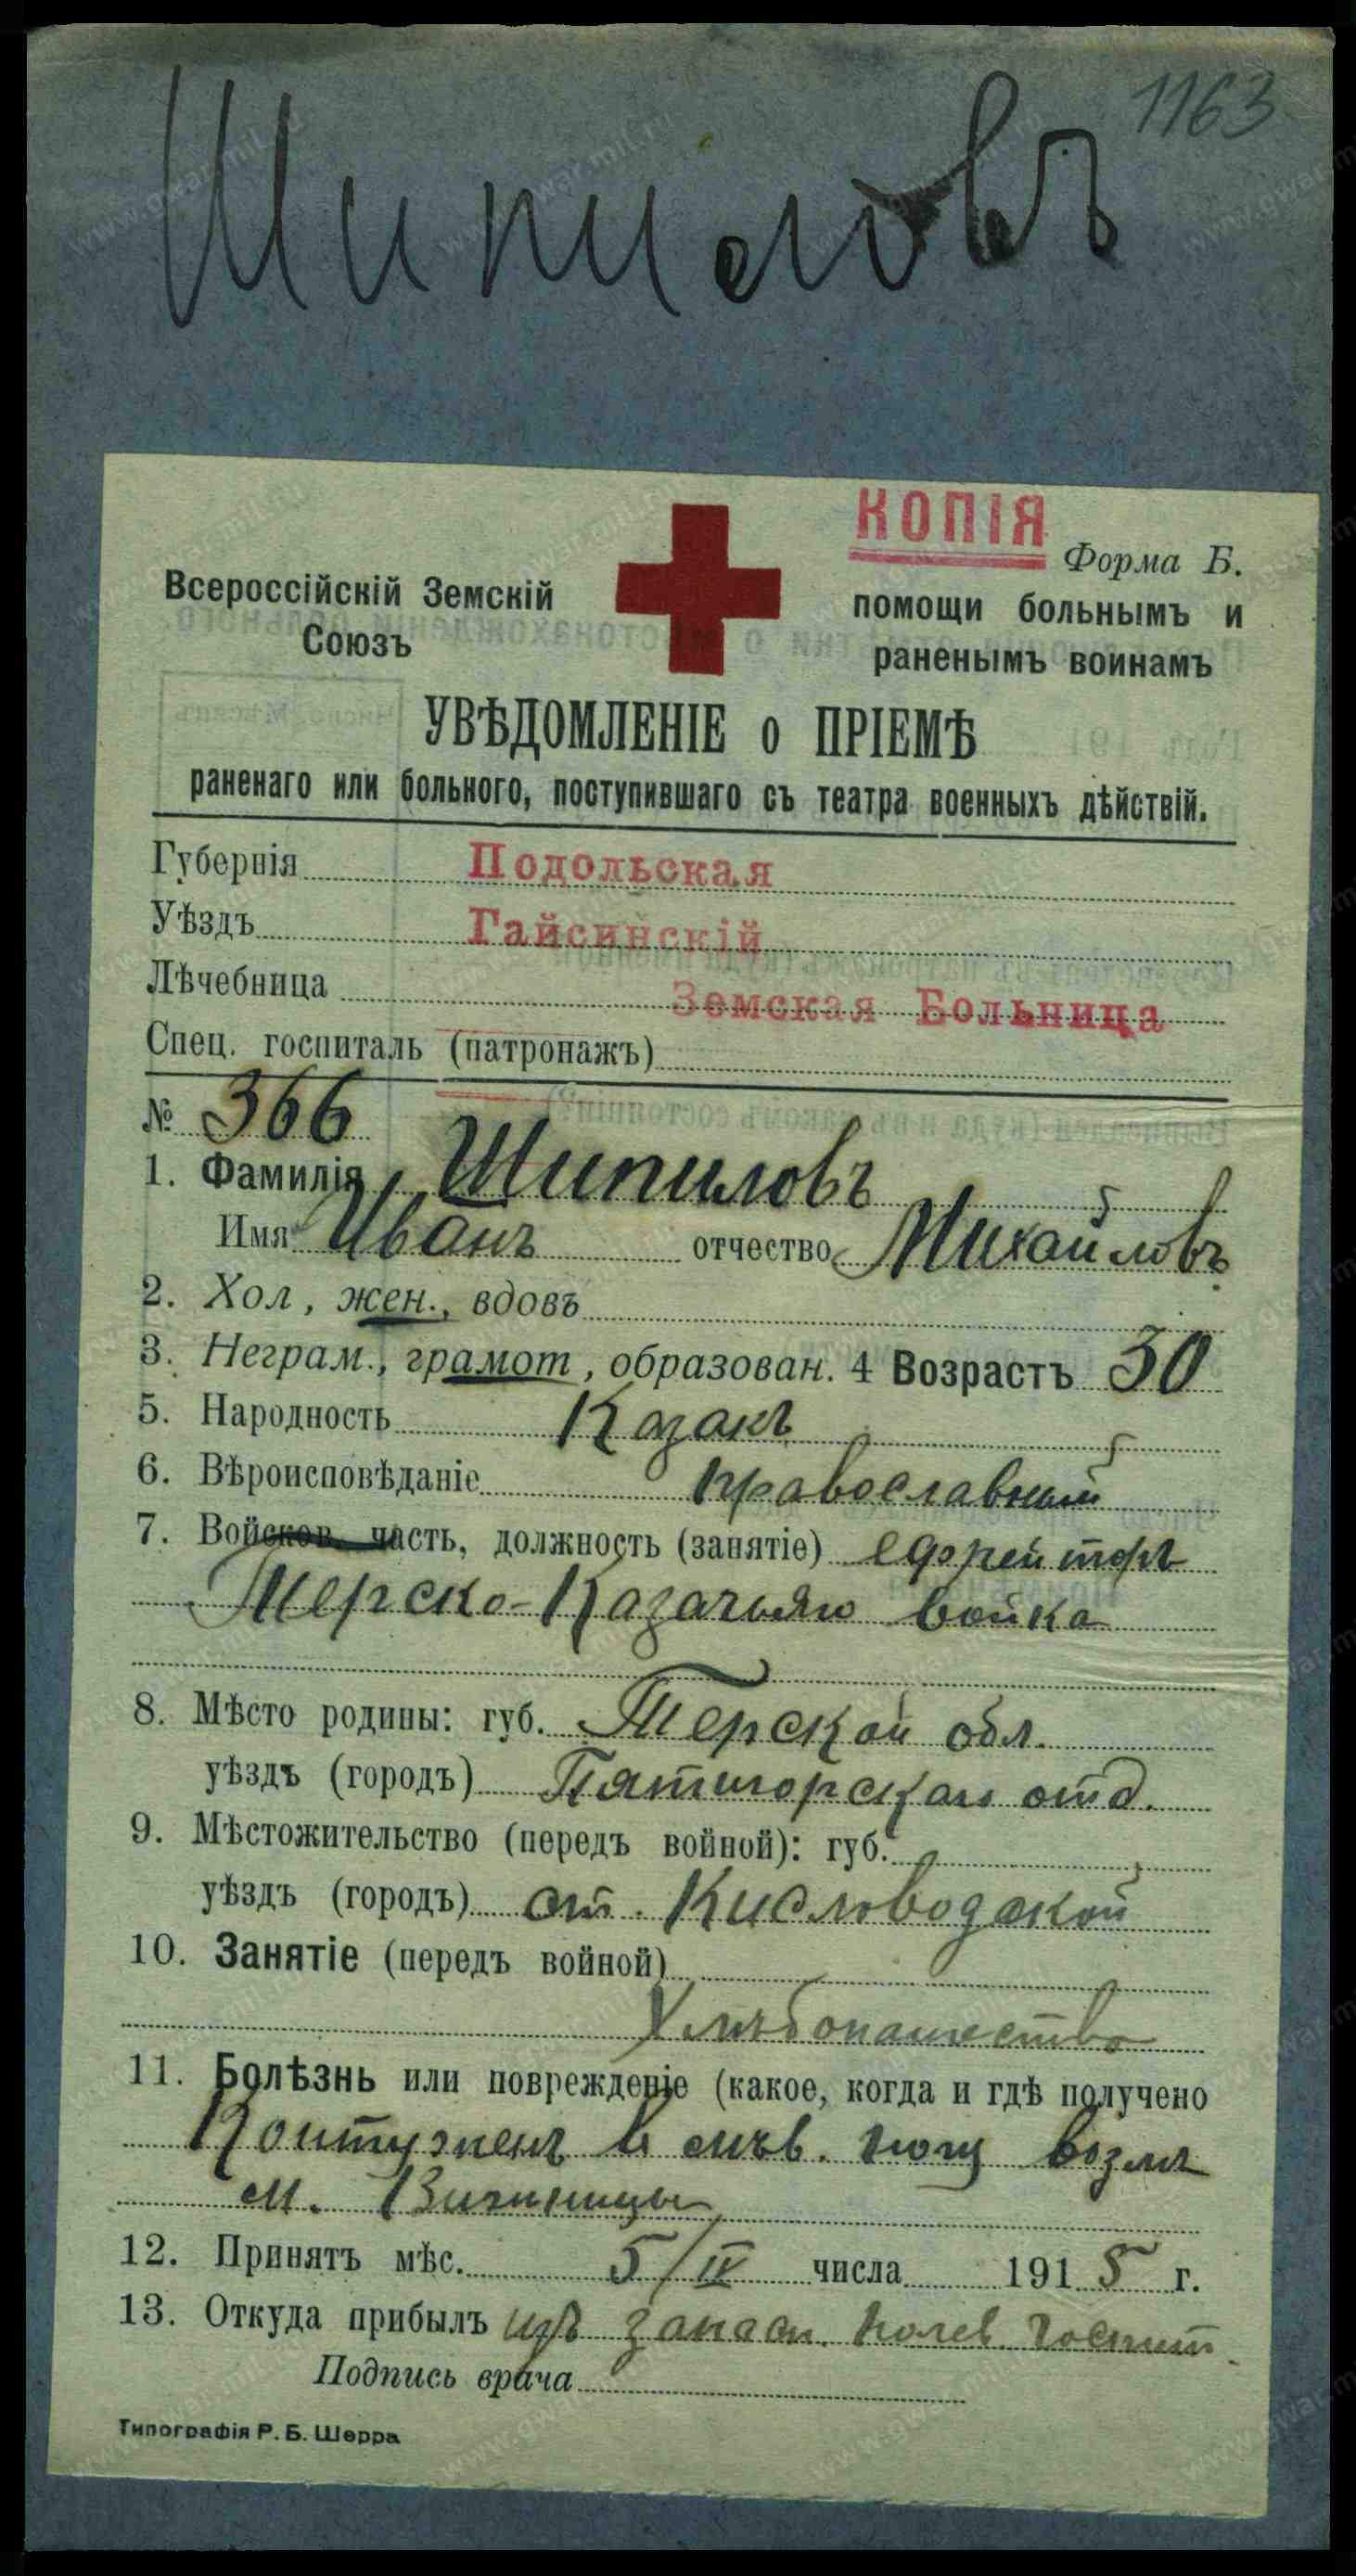 1163
Шипиловъ
КОПІЯ
Форма Б.
Всероссійскій Земскій Союзъ
помощи больнымъ и раненымъ воинамъ
УВѢДОМЛЕНІЕ о ПРІЕМѢ
раненаго или больного, поступившаго съ театра военныхъ дѣйствій.
Губернія Подольская
Уѣздъ Гайсинскій
Лѣчебница Земская Больница
Спец. госпиталь (патронажъ)
№ 366
1. Фамилія Шипиловъ
Имя Иванъ отчество Михайловъ
2. Хол, жен., вдовъ
3. Неграм., грамот, образован. 4 Возрастъ 30
5. Народность Казакъ
6. Вѣроисповѣданіе православный
7. Войсков. часть, должность (занятіе) ефрейторъ
Терско-Казачьяго войка
8. Мѣсто родины: губ. Терской обл.
уѣздъ (городъ) Пятигорскаго отд.
9. Мѣстожительство (передъ войной): губ.
уѣздъ (городъ) ст. Кисловодской
10. Занятіе (передъ войной)
Хлѣбопашество
11. Болѣзнь или поврежденіе (какое, когда и гдѣ получено
Контуженъ в лѣв. ногу возлѣ
м. Вижницы
12. Принятъ мѣс. 5/IV числа 1915 г.
13. Откуда прибылъ изъ запасн. полев. госпит.
Подпись врача
Типографія Р. Б. Шерра
www.gwar.mil.ru